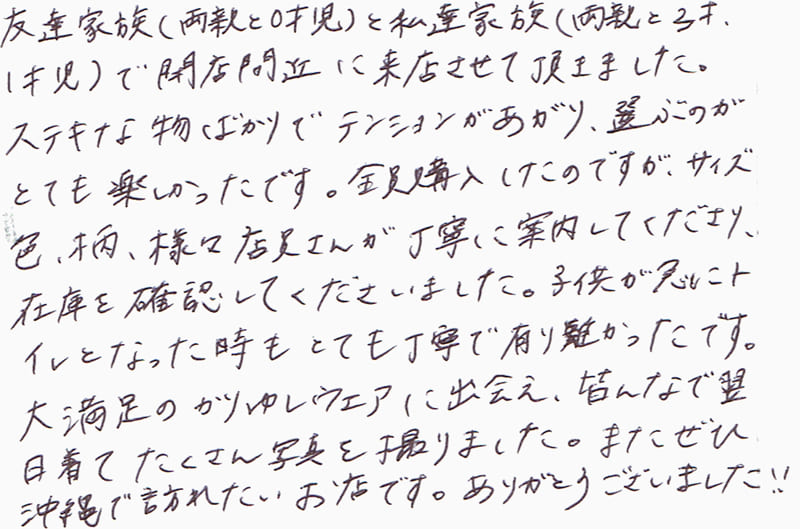 友達家族(両親と0才児)と私達家族(両親と3才、
1才児)で閉店間近に来店させて頂きました。
ステキな物ばかりでテンションがあがり、選ぶのが
とても楽しかったです。全員購入したのですが、サイズ
色、柄、様々店員さんが丁寧に案内してくださり、
在庫を確認してくださいました。子供が急にト
イレとなった時もとても丁寧で有り難かったです。
大満足のかりゆしウエアに出会え、皆んなで翌
日着てたくさん写真を撮りました。またぜひ
沖縄で訪れたいお店です。ありがとうございました!!